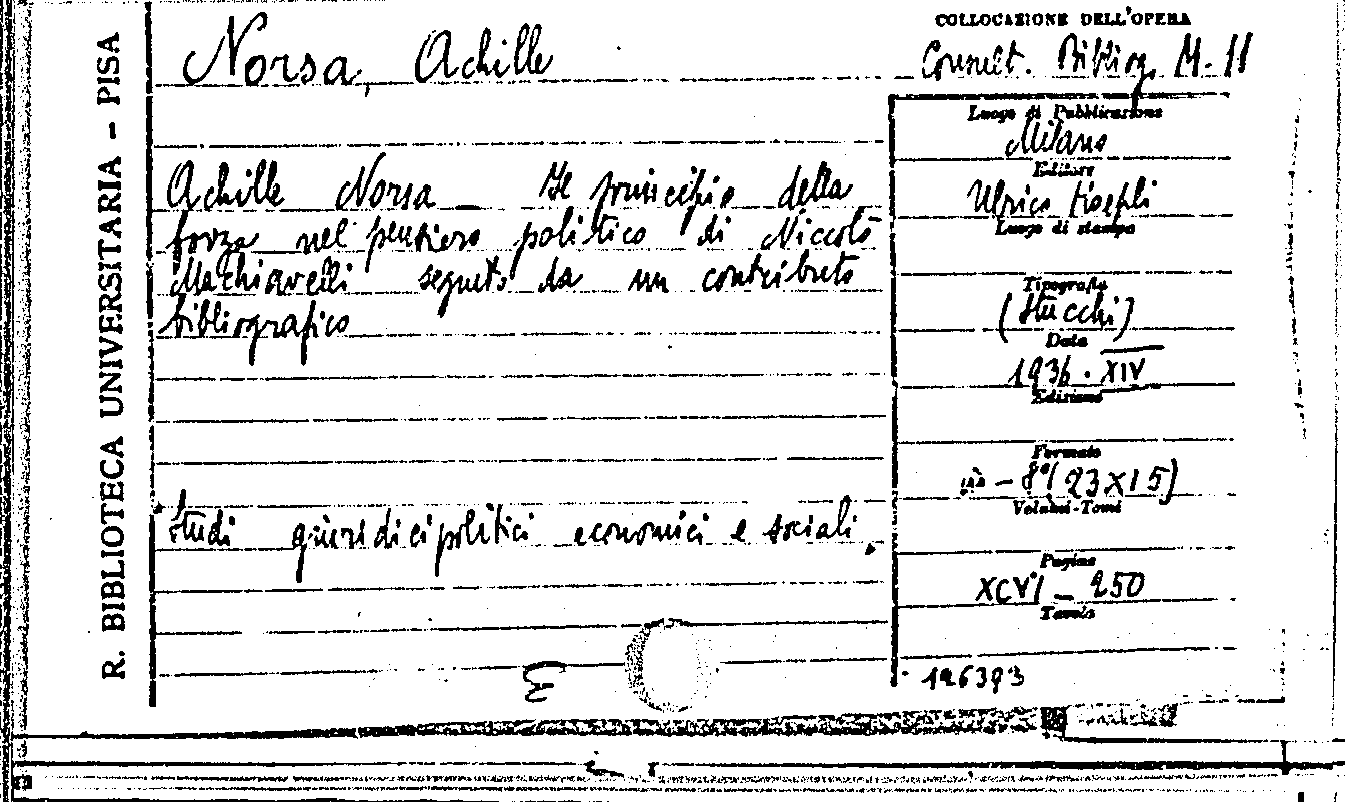 R. BIBLIOTECA UNIVERSITARIA – PISA
Norsa, Achille
COLLOCAZIONE DELL'OPERA
Consult. Bibliog. M. 11
Achille Norsa – Il principio della
forza nel pensiero politico di Niccolò
Machiavelli seguito da un contributo
bibliografico
"Studi giuridici politici economici e sociali"
Luogo di Pubblicazione
Milano
Editore
Ulrico Hoepli
Luogo di stampa
Tipografia
(Stucchi)
Data
1936 . XIV
Edizione
Formato
in – 8° (23X15)
Volumi-Tomi
Pagine
XCVI – 250
Tavole
126393